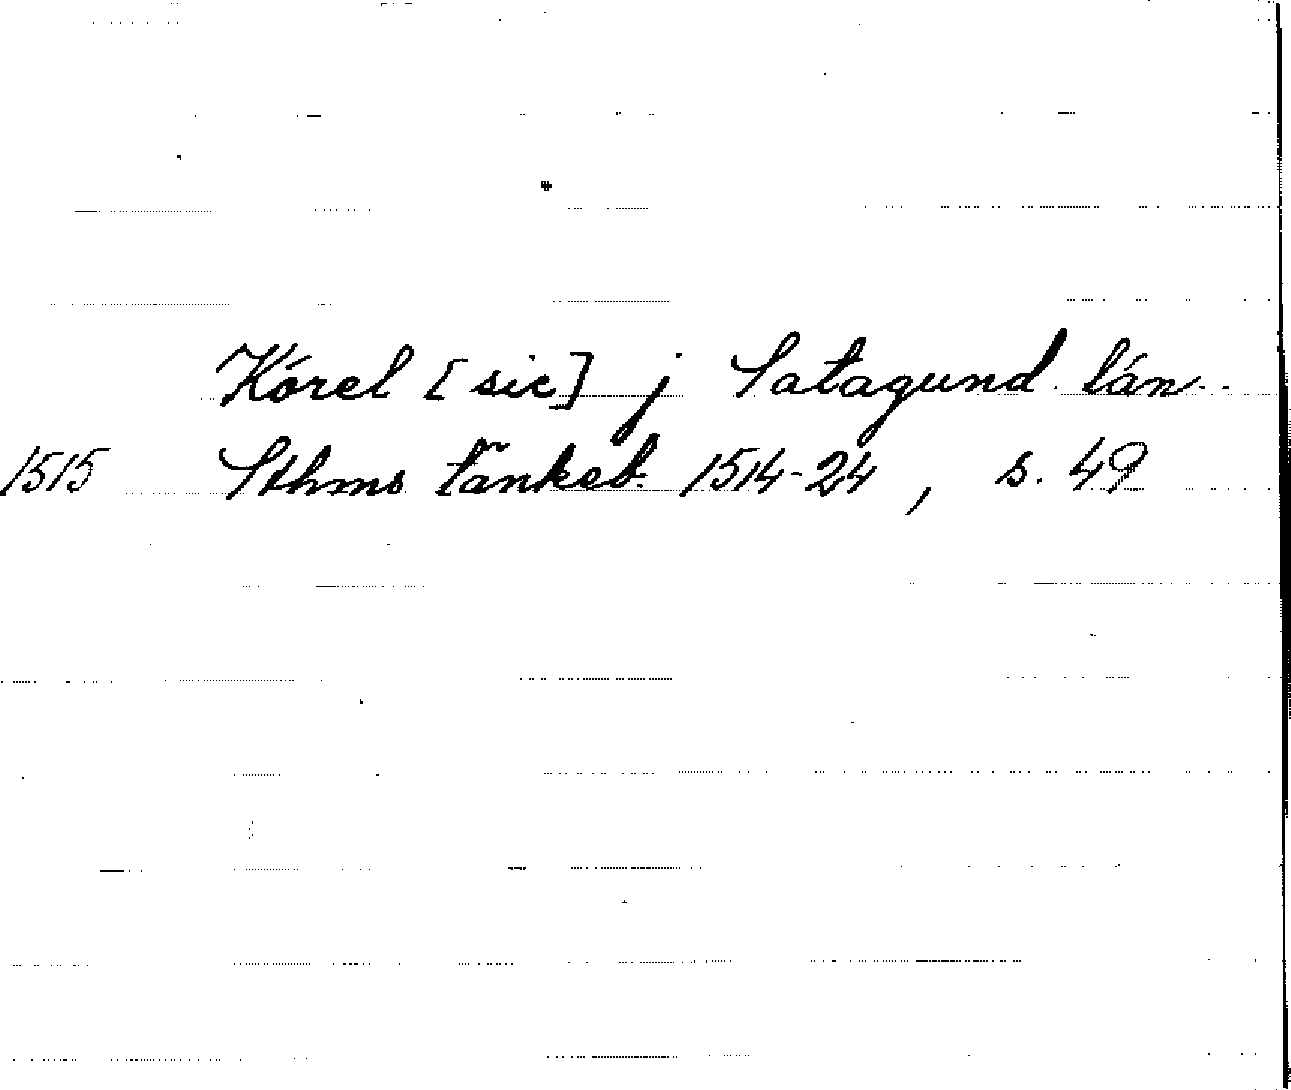 Kórel [sic] j Satagund. lán..
1515 Sthms Tänkeb. 1514-24, s. 49